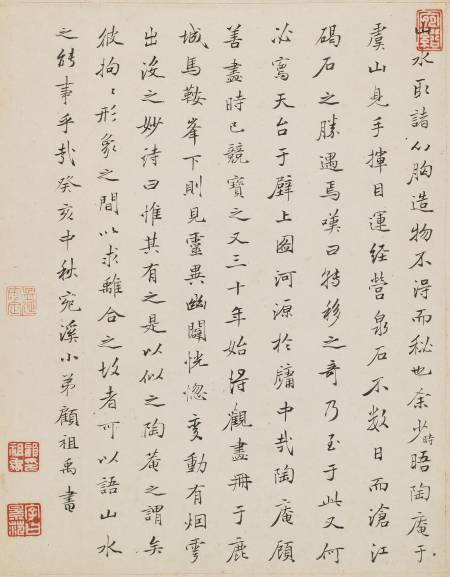 山水取諸心胸造物不得而秘也余少時晤陶庵于
虞山見手揮目運經營泉石不數日而滄江
碣石之勝遇焉嘆曰轉移之奇乃至于此又何
必寫天台于壁上圖河源於牗中哉陶庵顧
善畫時已競寶之又三十年始得觀畫冊于鹿
城馬鞍峯下則見靈異幽闃恍惚變動有烟雲
出沒之妙詩曰惟其有之是以似之陶菴之謂矣
彼拘〻形象之間以求離合之故者可以語山水
之能事乎哉癸亥中秋宛溪小弟顧祖禹書